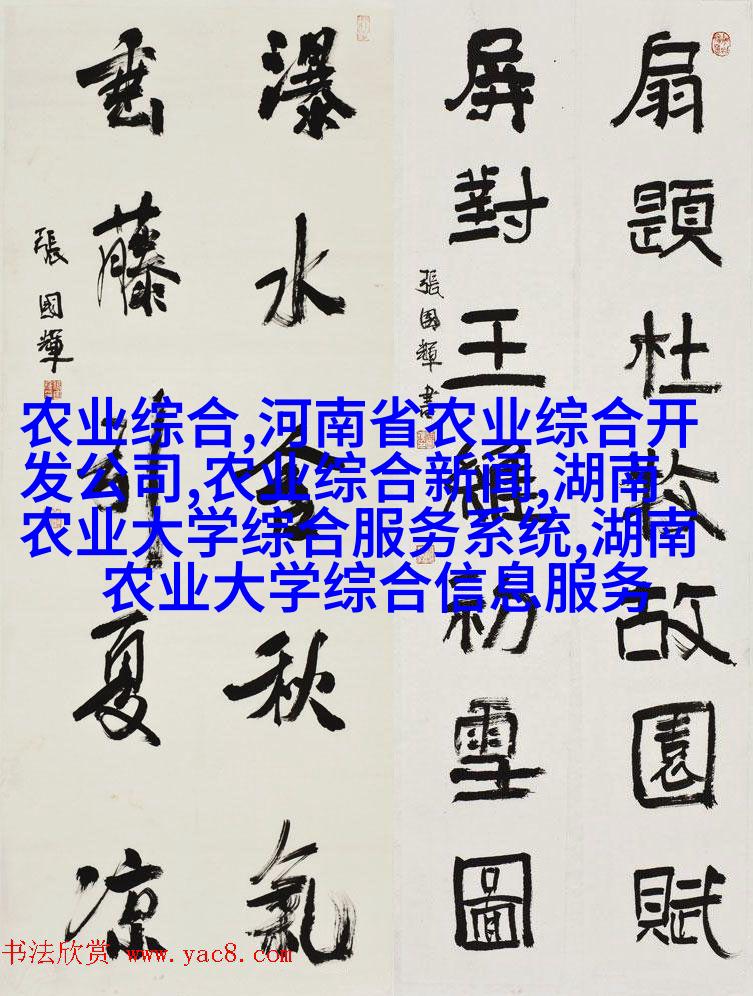 扇題杜牧故園賦
屏對王維初雪圖
張國輝書
瀑水含秋氣
垂藤引夏凉
張國輝
农业综合,河南省农业综合开
发公司,农业综合新闻,湖南
农业大学综合服务系统,湖南
农业大学综合信息服务
书法欣赏 www.yac8.com